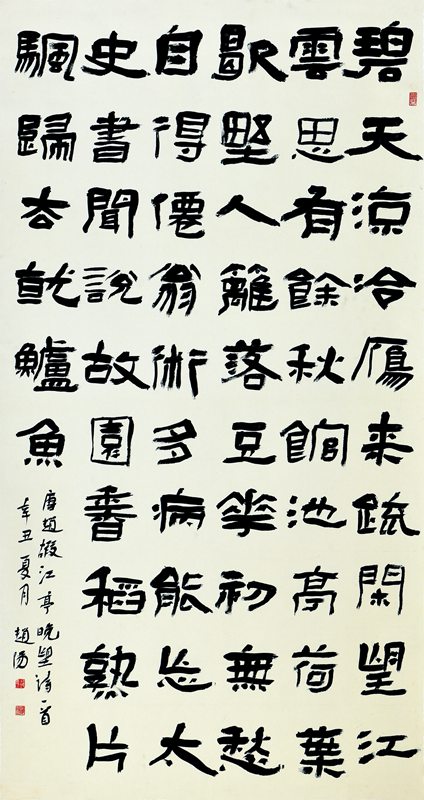 碧天涼冷鴈来疏閑望江
雲思有餘秋館池亭荷葉
歇野人籬落豆華初無愁
自得僊翁術多病能忘太
史書聞說故園香稻熟片
颿歸去就鱸魚
唐趙嘏江亭晚望詩一首
辛丑夏月 趙